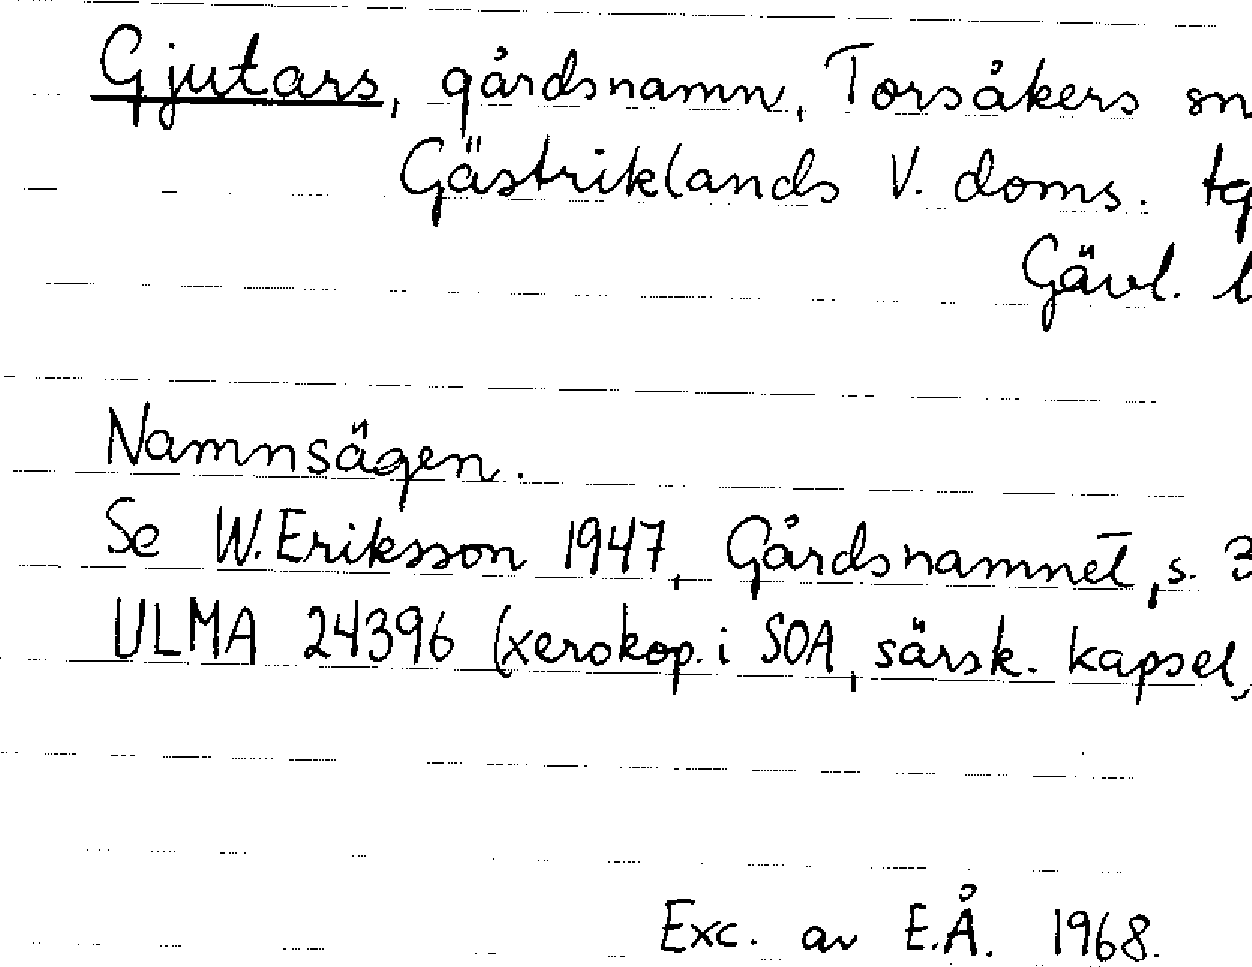 Gjutars, gårdsnamn, Torsåkers sn
Gästriklands V. doms. tg
Gävl. l
Namnsägen.
Se W. Eriksson 1947, Gårdsnamnet, s. 3
ULMA 24396 (xerokop. i SOA, särsk. kapsel,
Exc. av E.Å. 1968.